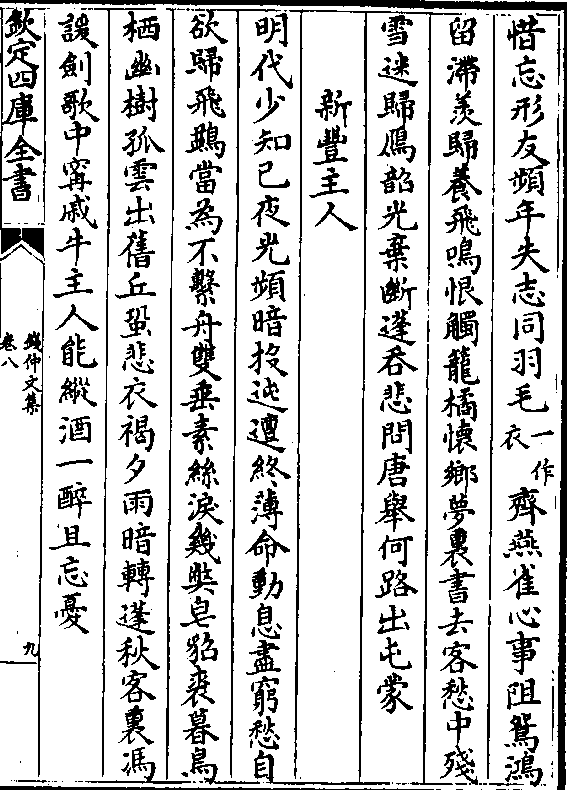 惜忘形友頻年失志同羽毛一作衣齊燕雀心事阻鴛鴻
留滯羨歸養飛鳴恨觸籠橘懷鄉夢裏書去客愁中殘
雪迷歸鴈韶光棄斷蓬吞悲問唐舉何路出屯蒙
新豐主人
明代少知己夜光頻暗投迍邅終薄命動息盡窮愁自
欲歸飛鷁當為不繫舟雙垂素絲淚幾弊皂貂裘暮鳥
栖幽樹孤雲出舊丘蛩悲衣褐夕雨暗轉蓬秋客裏馮
諼劍歌中寗戚牛主人能縱酒一醉且忘憂
欽定四庫全書
錢仲文集
卷八
九